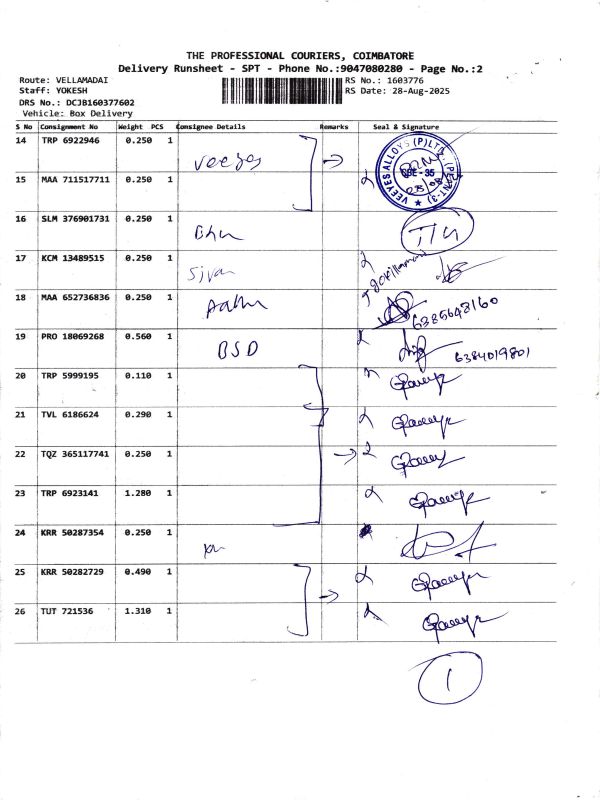 THE PROFESSIONAL COURIERS, COIMBATORE
Delivery Runsheet - SPT - Phone No.:9047080280 - Page No.:2
Route: VELLAMADAI RS No.: 1603776
Staff: YOKESH RS Date: 28-Aug-2025
DRS No.: DCJB160377602
Vehicle: Box Delivery
S No Consignment No Weight PCS Consignee Details Remarks Seal & Signature
14 TRP 6922946 0.250 1 Veeyes
VEEYES ALLOYS (P) LTD. (PLANT-3) CBE - 35
15 MAA 711517711 0.250 1
16 SLM 376901731 0.250 1
17 KCM 13489515 0.250 1 Siva
18 MAA 652736836 0.250 1 6385648160
19 PRO 18069268 0.560 1 BSD 6384019801
20 TRP 5999195 0.110 1
21 TVL 6186624 0.290 1
22 TQZ 365117741 0.250 1
23 TRP 6923141 1.280 1
24 KRR 50287354 0.250 1
25 KRR 50282729 0.490 1
26 TUT 721536 1.310 1
1